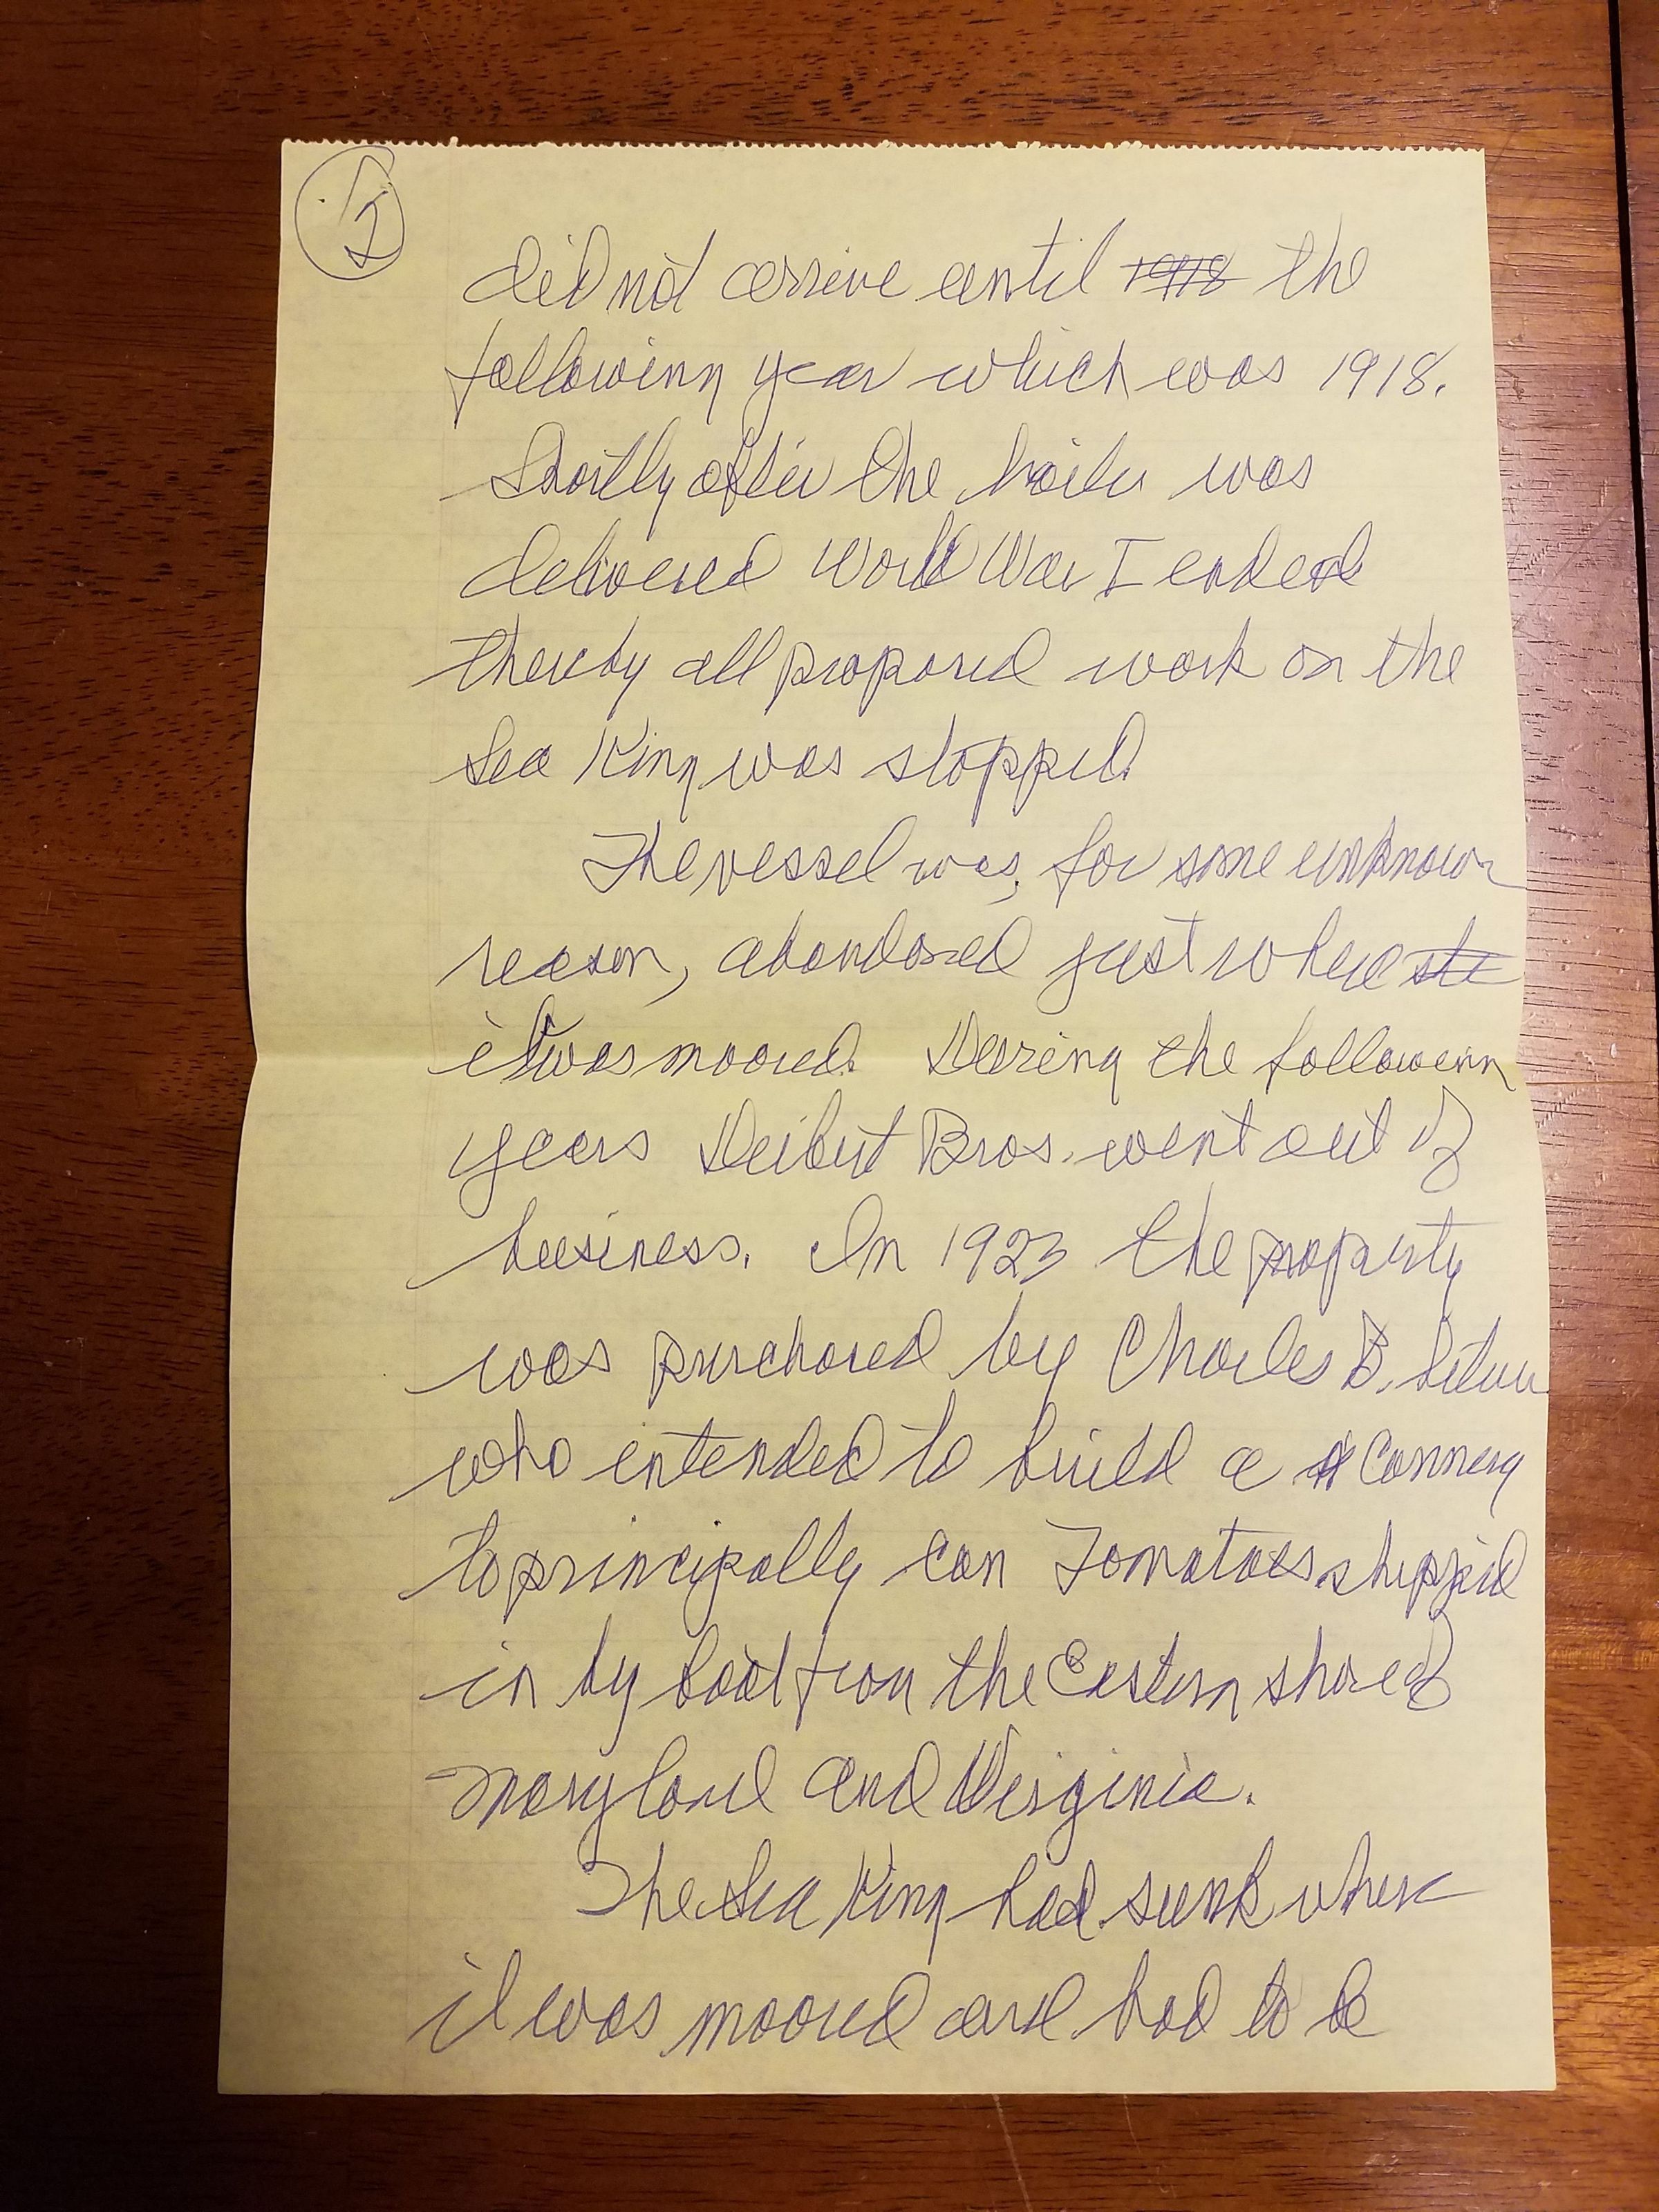 2
did not arrive until 1918 the
following year which was 1918.
Shortly after the boiler was
delivered World War I ended
thereby all proposed work on the
Sea King was stopped.
The vessel was, for some unknown
reason, abandoned just where she
it was moored. During the following
years Deibert Bros. went out of
business. In 1923 the property
was purchased by Charles B.
who intended to build a Cannery
to principally can Tomatoes shipped
in by boat from the Eastern shore of
Maryland and Virginia.
The Sea King had sunk where
it was moored and had to be